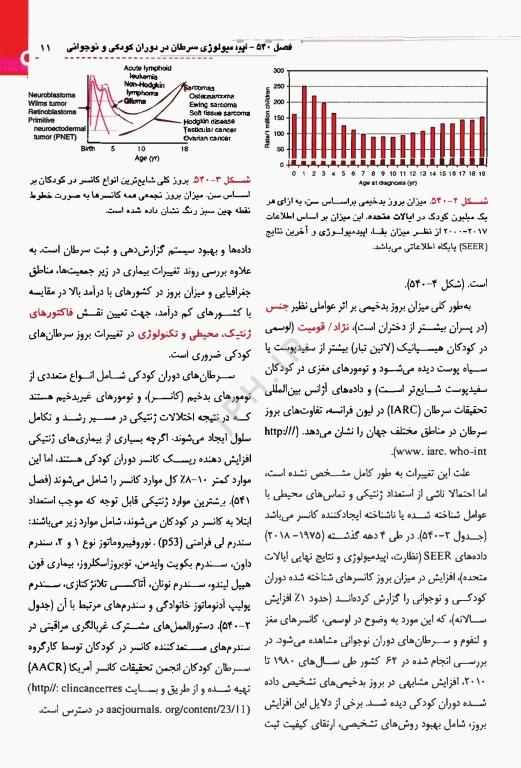 فصل ۵۴۰ – اپیدمیولوژی سرطان در دوران کودکی و نوجوانی ۱۱
300
250
200
150
100
50
0
Rate/1 million children
0 1 2 3 4 5 6 7 8 9 10 11 12 13 14 15 16 17 18 19
Age at diagnosis (yr)
شکل ۲-۵۴۰. میزان بروز بدخیمی براساس سن، به ازای هر
یک میلیون کودک در ایالات متحده. این میزان بر اساس اطلاعات
۲۰۱۷-۲۰۰۰ از نظر میزان بقا، اپیدمیولوژی و آخرین نتایج
(SEER) پایگاه اطلاعاتی می‌باشد.
است. (شکل ۴-۵۴۰).
به‌طور کلی میزان بروز بدخیمی بر اثر عواملی نظیر جنس
(در پسران بیشتر از دختران است)، نژاد/ قومیت (لوسمی
در کودکان هیسپانیک (لاتین تبار) بیشتر از سفیدپوست یا
سیاه پوست دیده می‌شود و تومورهای مغزی در کودکان
سفیدپوست شایع‌تر است) و داده‌های آژانس بین‌المللی
تحقیقات سرطان (IARC) در لیون فرانسه، تفاوت‌های بروز
سرطان در مناطق مختلف جهان را نشان می‌دهد. (http:///
www. iarc. who-int).
علت این تغییرات به طور کامل مشخص نشده است،
اما احتمالا ناشی از استعداد ژنتیکی و تماس‌های محیطی با
عوامل شناخته شده یا ناشناخته ایجادکننده کانسر می‌باشد
(جدول ۲-۵۴۰). در طی ۴ دهه گذشته (۱۹۷۵- ۲۰۱۸)
داده‌های SEER (نظارت، اپیدمیولوژی و نتایج نهایی ایالات
متحده)، افزایش در میزان بروز کانسرهای شناخته شده دوران
کودکی و نوجوانی را گزارش کرده‌اند (حدود ۱٪ افزایش
سالانه)، که این مورد به وضوح در لوسمی، کانسرهای مغز
و لنفوم و سرطان‌های دوران نوجوانی مشاهده می‌شود. در
بررسی انجام شده در ۶۲ کشور طی سال‌های ۱۹۸۰ تا
۲۰۱۰، افزایش مشابهی در بروز بدخیمی‌های تشخیص داده
شده دوران کودکی دیده شد. برخی از دلایل این افزایش
بروز، شامل بهبود روش‌های تشخیصی، ارتقای کیفیت ثبت
Neuroblastoma
Wilms tumor
Retinoblastoma
Primitive
neuroectodermal
tumor (PNET)
Acute lymphoid
leukemia
Non-Hodgkin
lymphoma
Glioma
Sarcomas
Osteosarcoma
Ewing sarcoma
Soft tissue sarcoma
Hodgkin disease
Testicular cancer
Ovarian cancer
Birth 5 10 18
Age (yr)
شکل ۳-۵۴۰. بروز کلی شایع‌ترین انواع کانسر در کودکان بر
اساس سن. میزان بروز تجمعی همه کانسرها به صورت خطوط
نقطه چین سبز رنگ نشان داده شده است.
داده‌ها و بهبود سیستم گزارش‌دهی و ثبت سرطان است. به
علاوه بررسی روند تغییرات بیماری در زیر جمعیت‌ها، مناطق
جغرافیایی و میزان بروز در کشورهای با درآمد بالا در مقایسه
با کشورهای کم درآمد، جهت تعیین نقش فاکتورهای
ژنتیک، محیطی و تکنولوژی در تغییرات بروز سرطان‌های
کودکی ضروری است.
سرطان‌های دوران کودکی شامل انواع متعددی از
تومورهای بدخیم (کانسر)، و تومورهای غیربدخیم هستند
که در نتیجه اختلالات ژنتیکی در مسیر رشد و تکامل
سلول ایجاد می‌شوند. اگرچه بسیاری از بیماری‌های ژنتیکی
افزایش دهنده ریسک کانسر دوران کودکی هستند، اما این
موارد کمتر ۱۰-۸٪ کل موارد کانسر را شامل می‌شوند (فصل
۵۴۱). برشترین موارد ژنتیکی قابل توجه که موجب استعداد
ابتلا به کانسر در کودکان می‌شوند، شامل موارد زیر می‌باشند:
سندرم لی فرامنی (p53) . نوروفیبروماتوز نوع ۱ و ۲، سندرم
داون، سندرم بکویت وایدمن، توبروزاسکلروز، بیماری فون
هیپل لیندو، سندرم نونان، آتاکسی تلانژکتازی، سندرم
پولیپ آدنوماتوز خانوادگی و سندرم‌های مرتبط با آن (جدول
۲-۵۴۰). دستورالعمل‌های مشترک غربالگری مراقبتی در
سندرم‌های مستعدکننده کانسر در کودکان توسط کارگروه
سرطان کودکان انجمن تحقیقات کانسر آمریکا (AACR)
تهیه شده و از طریق و بسایت (http//: clincancerres
aacjournals. org/content/23/11) در دسترس است.